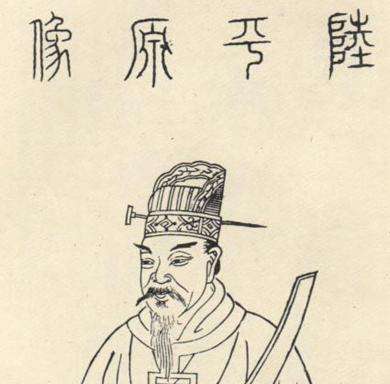 陸平原像